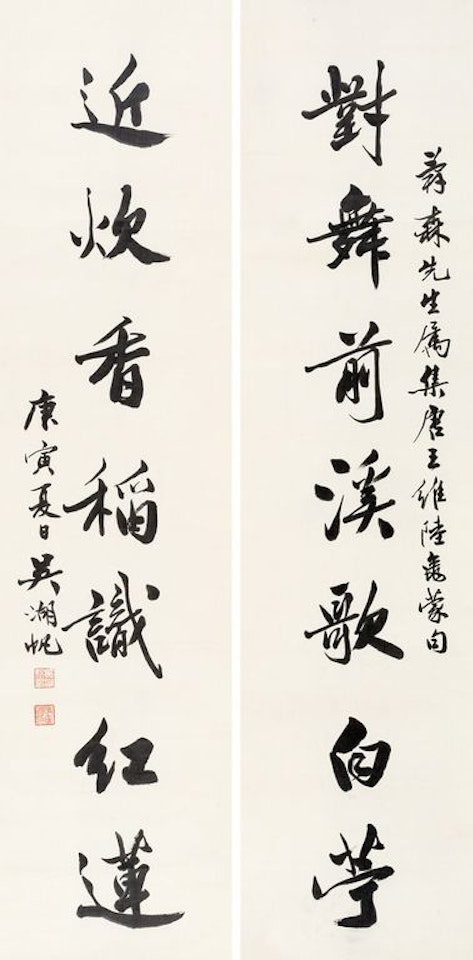 森先生属集唐王維陸龜蒙句
對舞前溪歌白苧
近炊香稻識紅蓮
庚寅夏日吴湖帆